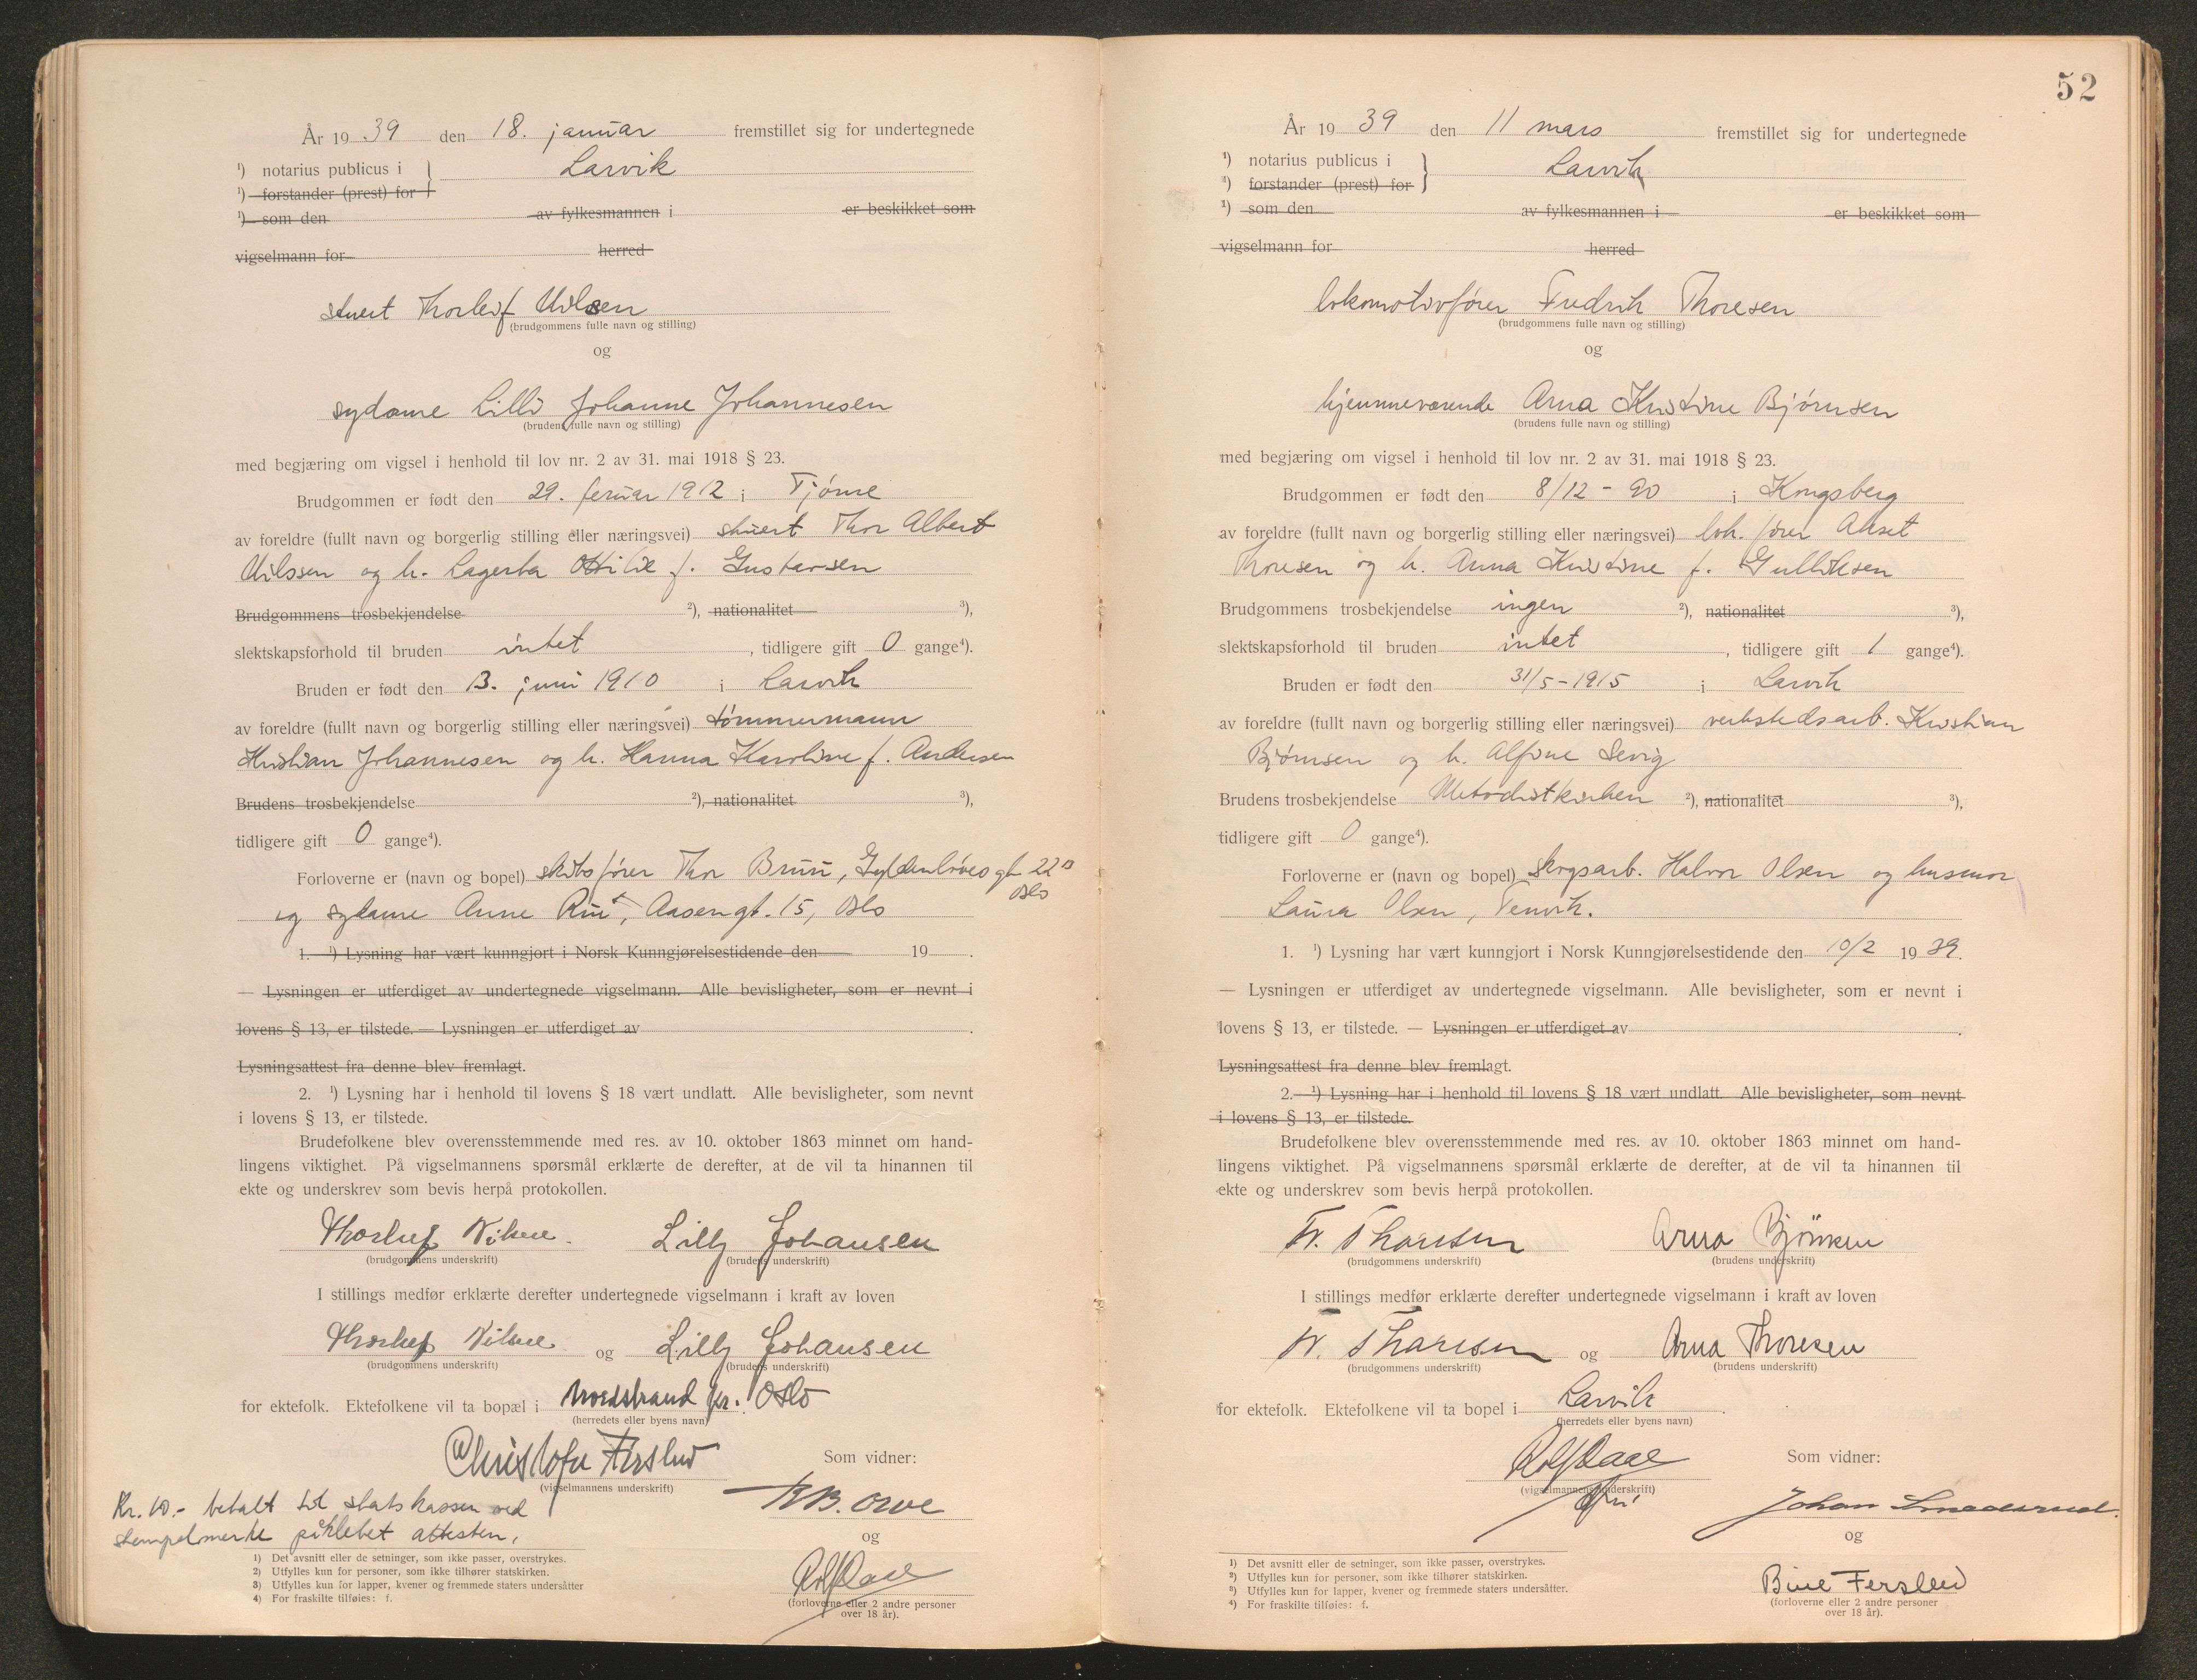 År 19 39 den 18. januar fremstillet sig for undertegnede
¹) notarius publicus i } Larvik
¹) forstander (prest) for
¹) som den av fylkesmannen i er beskikket som
vigselmann for herred
stuert Thorleif Nilsen
(brudgommens fulle navn og stilling)
og
sydame Lilli Johanne Johannesen
(brudens fulle navn og stilling)
med begjæring om vigsel i henhold til lov nr. 2 av 31. mai 1918 § 23.
Brudgommen er født den 29. feruar 1912 i Tjøme
av foreldre (fullt navn og borgerlig stilling eller næringsvei) stuert Thor Albert
Nilssen og h. Lagerta Ottilie f. Gustavsen
Brudgommens trosbekjendelse ²), nationalitet ³),
slektskapsforhold til bruden intet, tidligere gift 0 gange⁴).
Bruden er født den 13. juni 1910 i Larvik
av foreldre (fullt navn og borgerlig stilling eller næringsvei) tømmermann
Kristian Johannesen og h. Hanna Karoline f. Andersen
Brudens trosbekjendelse ²), nationalitet ³),
tidligere gift 0 gange⁴).
Forloverne er (navn og bopel) skibsfører Thor Bruu, Gyldenløves gt 22 B
Oslo
og sydame Anne Ruu, Aasengt. 15, Oslo
1. ¹) Lysning har vært kunngjort i Norsk Kunngjørelsestidende den 19 .
— Lysningen er utferdiget av undertegnede vigselmann. Alle bevisligheter, som er nevnt i
lovens § 13, er tilstede. — Lysningen er utferdiget av .
Lysningsattest fra denne blev fremlagt.
2. ¹) Lysning har i henhold til lovens § 18 vært undlatt. Alle bevisligheter, som nevnt
i lovens § 13, er tilstede.
Brudefolkene blev overensstemmende med res. av 10. oktober 1863 minnet om hand-
lingens viktighet. På vigselmannens spørsmål erklærte de derefter, at de vil ta hinannen til
ekte og underskrev som bevis herpå protokollen.
Thorleif Nilsen. Lilly Johansen
(brudgommens underskrift) (brudens underskrift)
I stillings medfør erklærte derefter undertegnede vigselmann i kraft av loven
Thorleif Nilsen og Lilly Johansen
(brudgommens underskrift) (brudens underskrift)
for ektefolk. Ektefolkene vil ta bopæl i Nordstrand pr. Oslo
(herredets eller byens navn)
Christofer Ferslew Som vidner:
(vigselmannens underskrift)
Kr. 10.- betalt til statskassen ved
stempelmerke påklebet attesten.
og
Rolf Daae
(forloverne eller 2 andre personer
over 18 år).
1) Det avsnitt eller de setninger, som ikke passer, overstrykes.
2) Utfylles kun for personer, som ikke tilhører statskirken.
3) Utfylles kun for lapper, kvener og fremmede staters undersåtter
4) For fraskilte tilføies: f.
52
År 19 39 den 11 mars fremstillet sig for undertegnede
¹) notarius publicus i } Larvik
¹) forstander (prest) for
¹) som den av fylkesmannen i er beskikket som
vigselmann for herred
lokomotivfører Fredrik Thoresen
(brudgommens fulle navn og stilling)
og
hjemmeværende Arna Kristine Bjørnsen
(brudens fulle navn og stilling)
med begjæring om vigsel i henhold til lov nr. 2 av 31. mai 1918 § 23.
Brudgommen er født den 8/12 - 90 i Kongsberg
av foreldre (fullt navn og borgerlig stilling eller næringsvei) lok. fører Aksel
Thoresen og h. Anna Kristine f. Gulliksen
Brudgommens trosbekjendelse ingen ²), nationalitet ³),
slektskapsforhold til bruden intet, tidligere gift 1 gange⁴).
Bruden er født den 31/5 - 1915 i Larvik
av foreldre (fullt navn og borgerlig stilling eller næringsvei) verkstedsarb. Kristian
Bjørnsen og h. Alfine Sevig
Brudens trosbekjendelse Metodistkirken ²), nationalitet ³),
tidligere gift 0 gange⁴).
Forloverne er (navn og bopel) skogsarb. Halvor Olsen og husmor
Laura Olsen, Tenvik.
1. ¹) Lysning har vært kunngjort i Norsk Kunngjørelsestidende den 10/2 19 39.
— Lysningen er utferdiget av undertegnede vigselmann. Alle bevisligheter, som er nevnt i
lovens § 13, er tilstede. — Lysningen er utferdiget av .
Lysningsattest fra denne blev fremlagt.
2. ¹) Lysning har i henhold til lovens § 18 vært undlatt. Alle bevisligheter, som nevnt
i lovens § 13, er tilstede.
Brudefolkene blev overensstemmende med res. av 10. oktober 1863 minnet om hand-
lingens viktighet. På vigselmannens spørsmål erklærte de derefter, at de vil ta hinannen til
ekte og underskrev som bevis herpå protokollen.
Fr. Thoresen Arna Bjørnsen
(brudgommens underskrift) (brudens underskrift)
I stillings medfør erklærte derefter undertegnede vigselmann i kraft av loven
Fr. Thoresen og Arna Thoresen
(brudgommens underskrift) (brudens underskrift)
for ektefolk. Ektefolkene vil ta bopel i Larvik.
(herredets eller byens navn)
Rolf Daae Som vidner:
(vigselmannens underskrift)
Johan Smedsrud.
og
Bine Ferslew
(forloverne eller 2 andre personer
over 18 år).
1) Det avsnitt eller de setninger, som ikke passer, overstrykes.
2) Utfylles kun for personer, som ikke tilhører statskirken.
3) Utfylles kun for lapper, kvener og fremmede staters undersåtter.
4) For fraskilte tilføies: f.